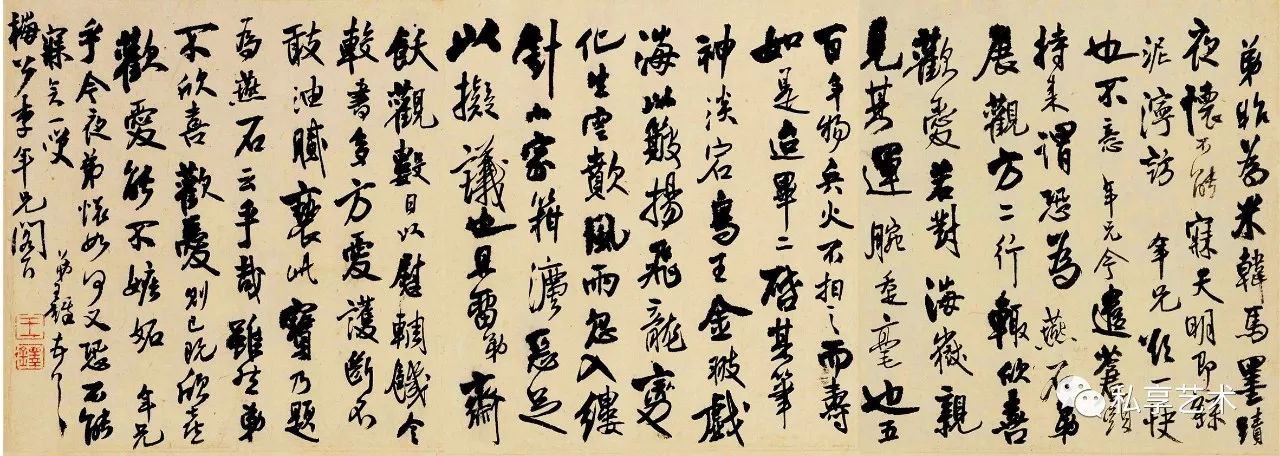 弟昨為米韓馬墨蹟
夜懷不能寐天明即
泥濘訪 年兄 一快
也不意 年兄今遣蒼頭
持來謂恐為燕石弟
展觀方二行輒欣喜
歡愛若對海嶽親
見其運腕垂毫也五
百年物兵火不拍之而壽
如是迨畢二啓其筆
神淡宕鳥王金翅戲
海以皷揚飛龍變
化生雲歕風雨忽入縷
針小窗籍 惡足
以擬議也且留弟齋
飫觀數日以慰輖饑今
較書多方愛護斷不
敢油膩褻此寶乃題
為燕石云乎哉雖然弟
不欣喜歡愛則已既欣喜
歡愛能不嫉妬 年兄
乎今夜弟懷如何又恐不能
寐矣一
梅公李年兄閣下
弟王鐸
王鐸
私享艺术